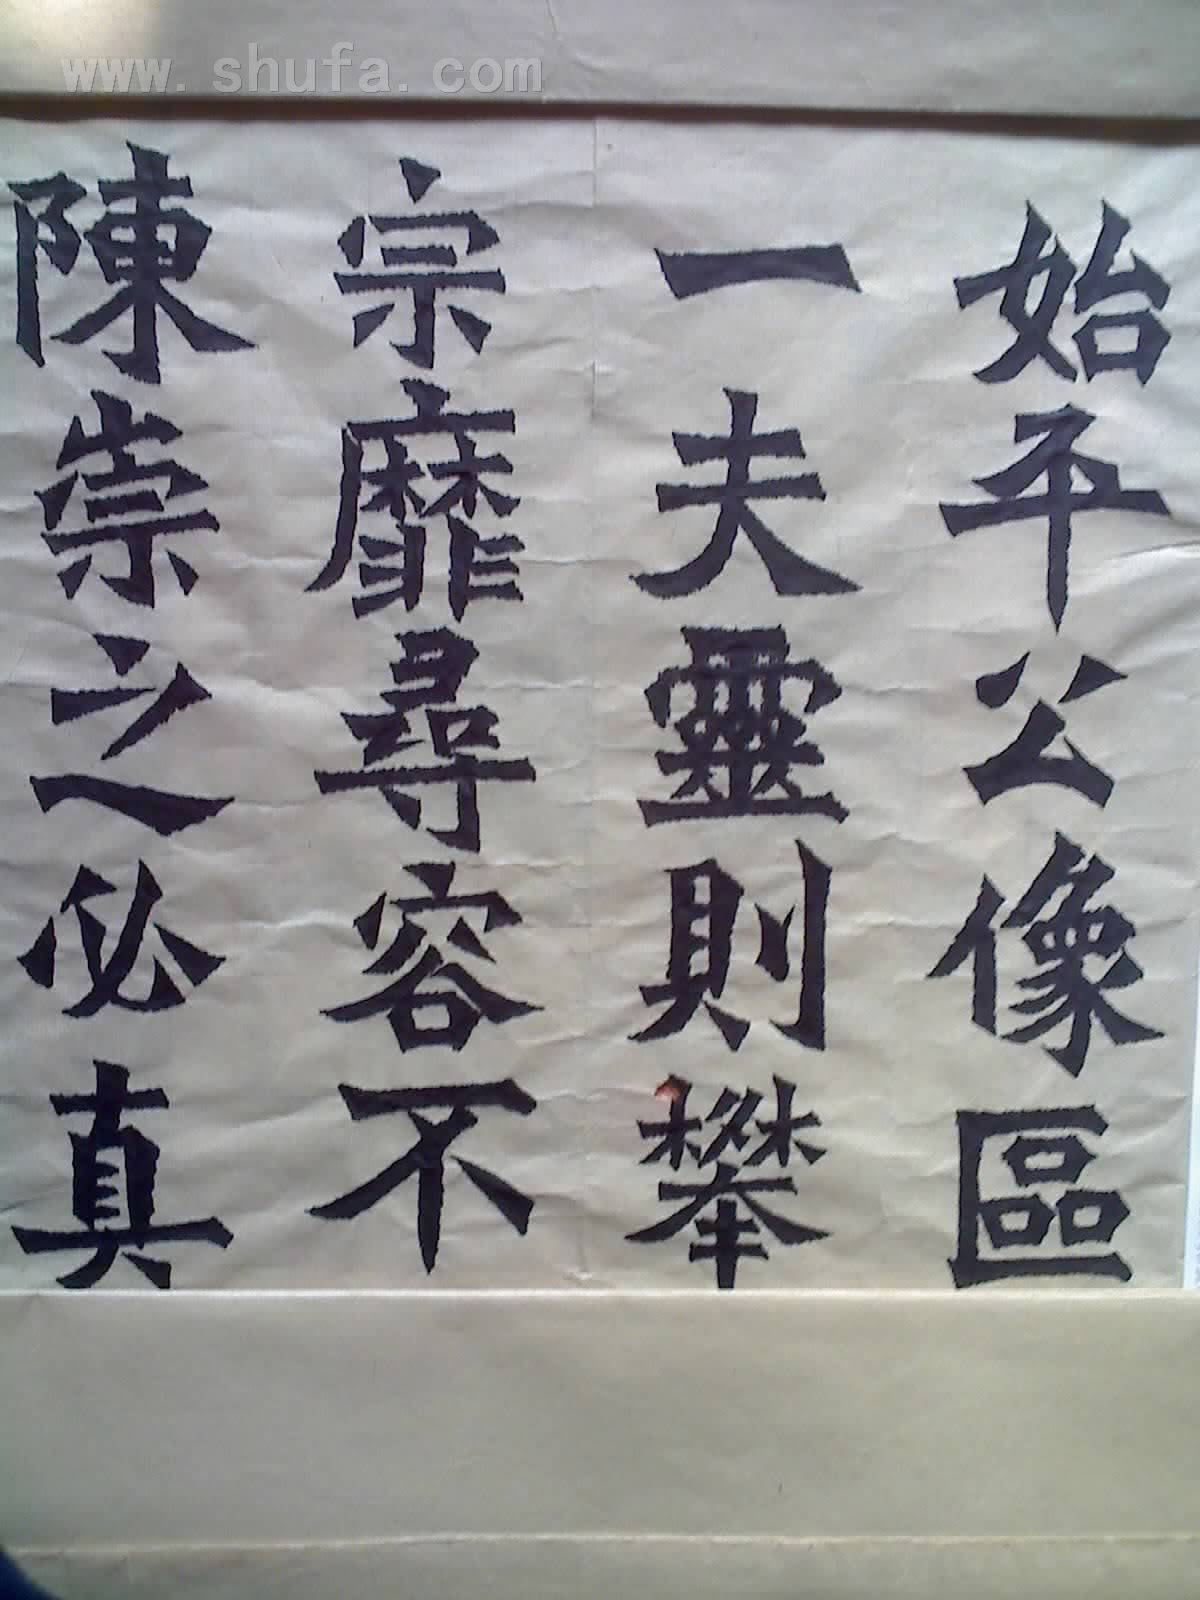 www.shufa.com
始平公像區
一夫靈則攀
宗靡尋容不
陳崇之必真